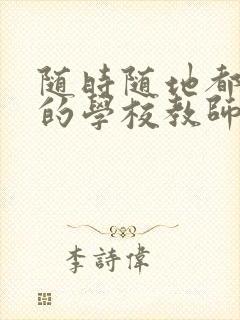 随時随地都
的學校教師
李詩偉